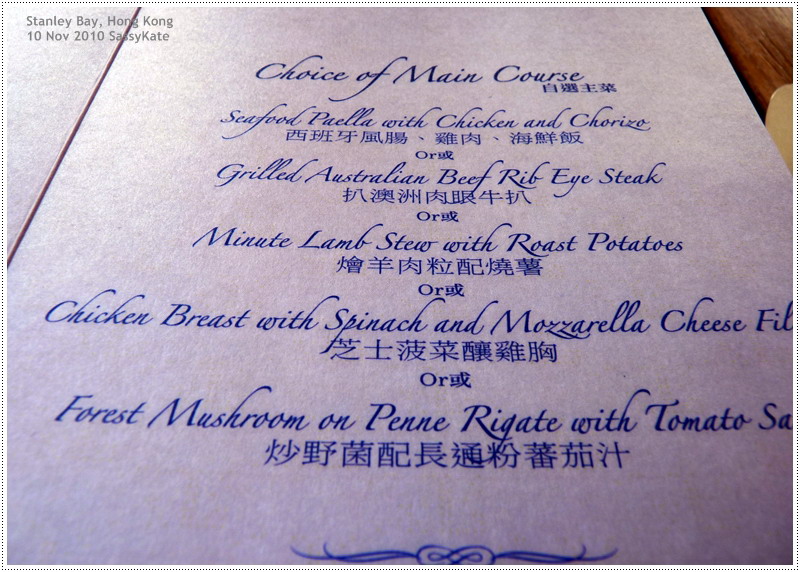 Stanley Bay, Hong Kong
10 Nov 2010 SassyKate
Choice of Main Course
自選主菜
Seafood Paella with Chicken and Chorizo
西班牙風腸、雞肉、海鮮飯
Or或
Grilled Australian Beef Rib Eye Steak
扒澳洲肉眼牛扒
Or或
Minute Lamb Stew with Roast Potatoes
燴羊肉粒配燒薯
Or或
Chicken Breast with Spinach and Mozzarella Cheese Fil
芝士菠菜釀雞胸
Or或
Forest Mushroom on Penne Rigate with Tomato Sa
炒野菌配長通粉蕃茄汁